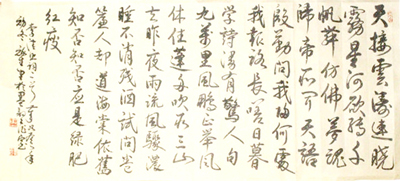 天接雲濤連曉
霧星河欲轉千
帆舞仿佛夢魂
歸帝所聞天語
殷勤問我歸何處
我報路長嗟日暮
學詩謾有驚人句
九萬里風鵬正舉風
休住蓬舟吹取三山
去昨夜雨疏風驟濃
睡不消殘酒試問卷
簾人却道海棠依舊
知否知否應是綠肥
紅瘦
李清照詞二首